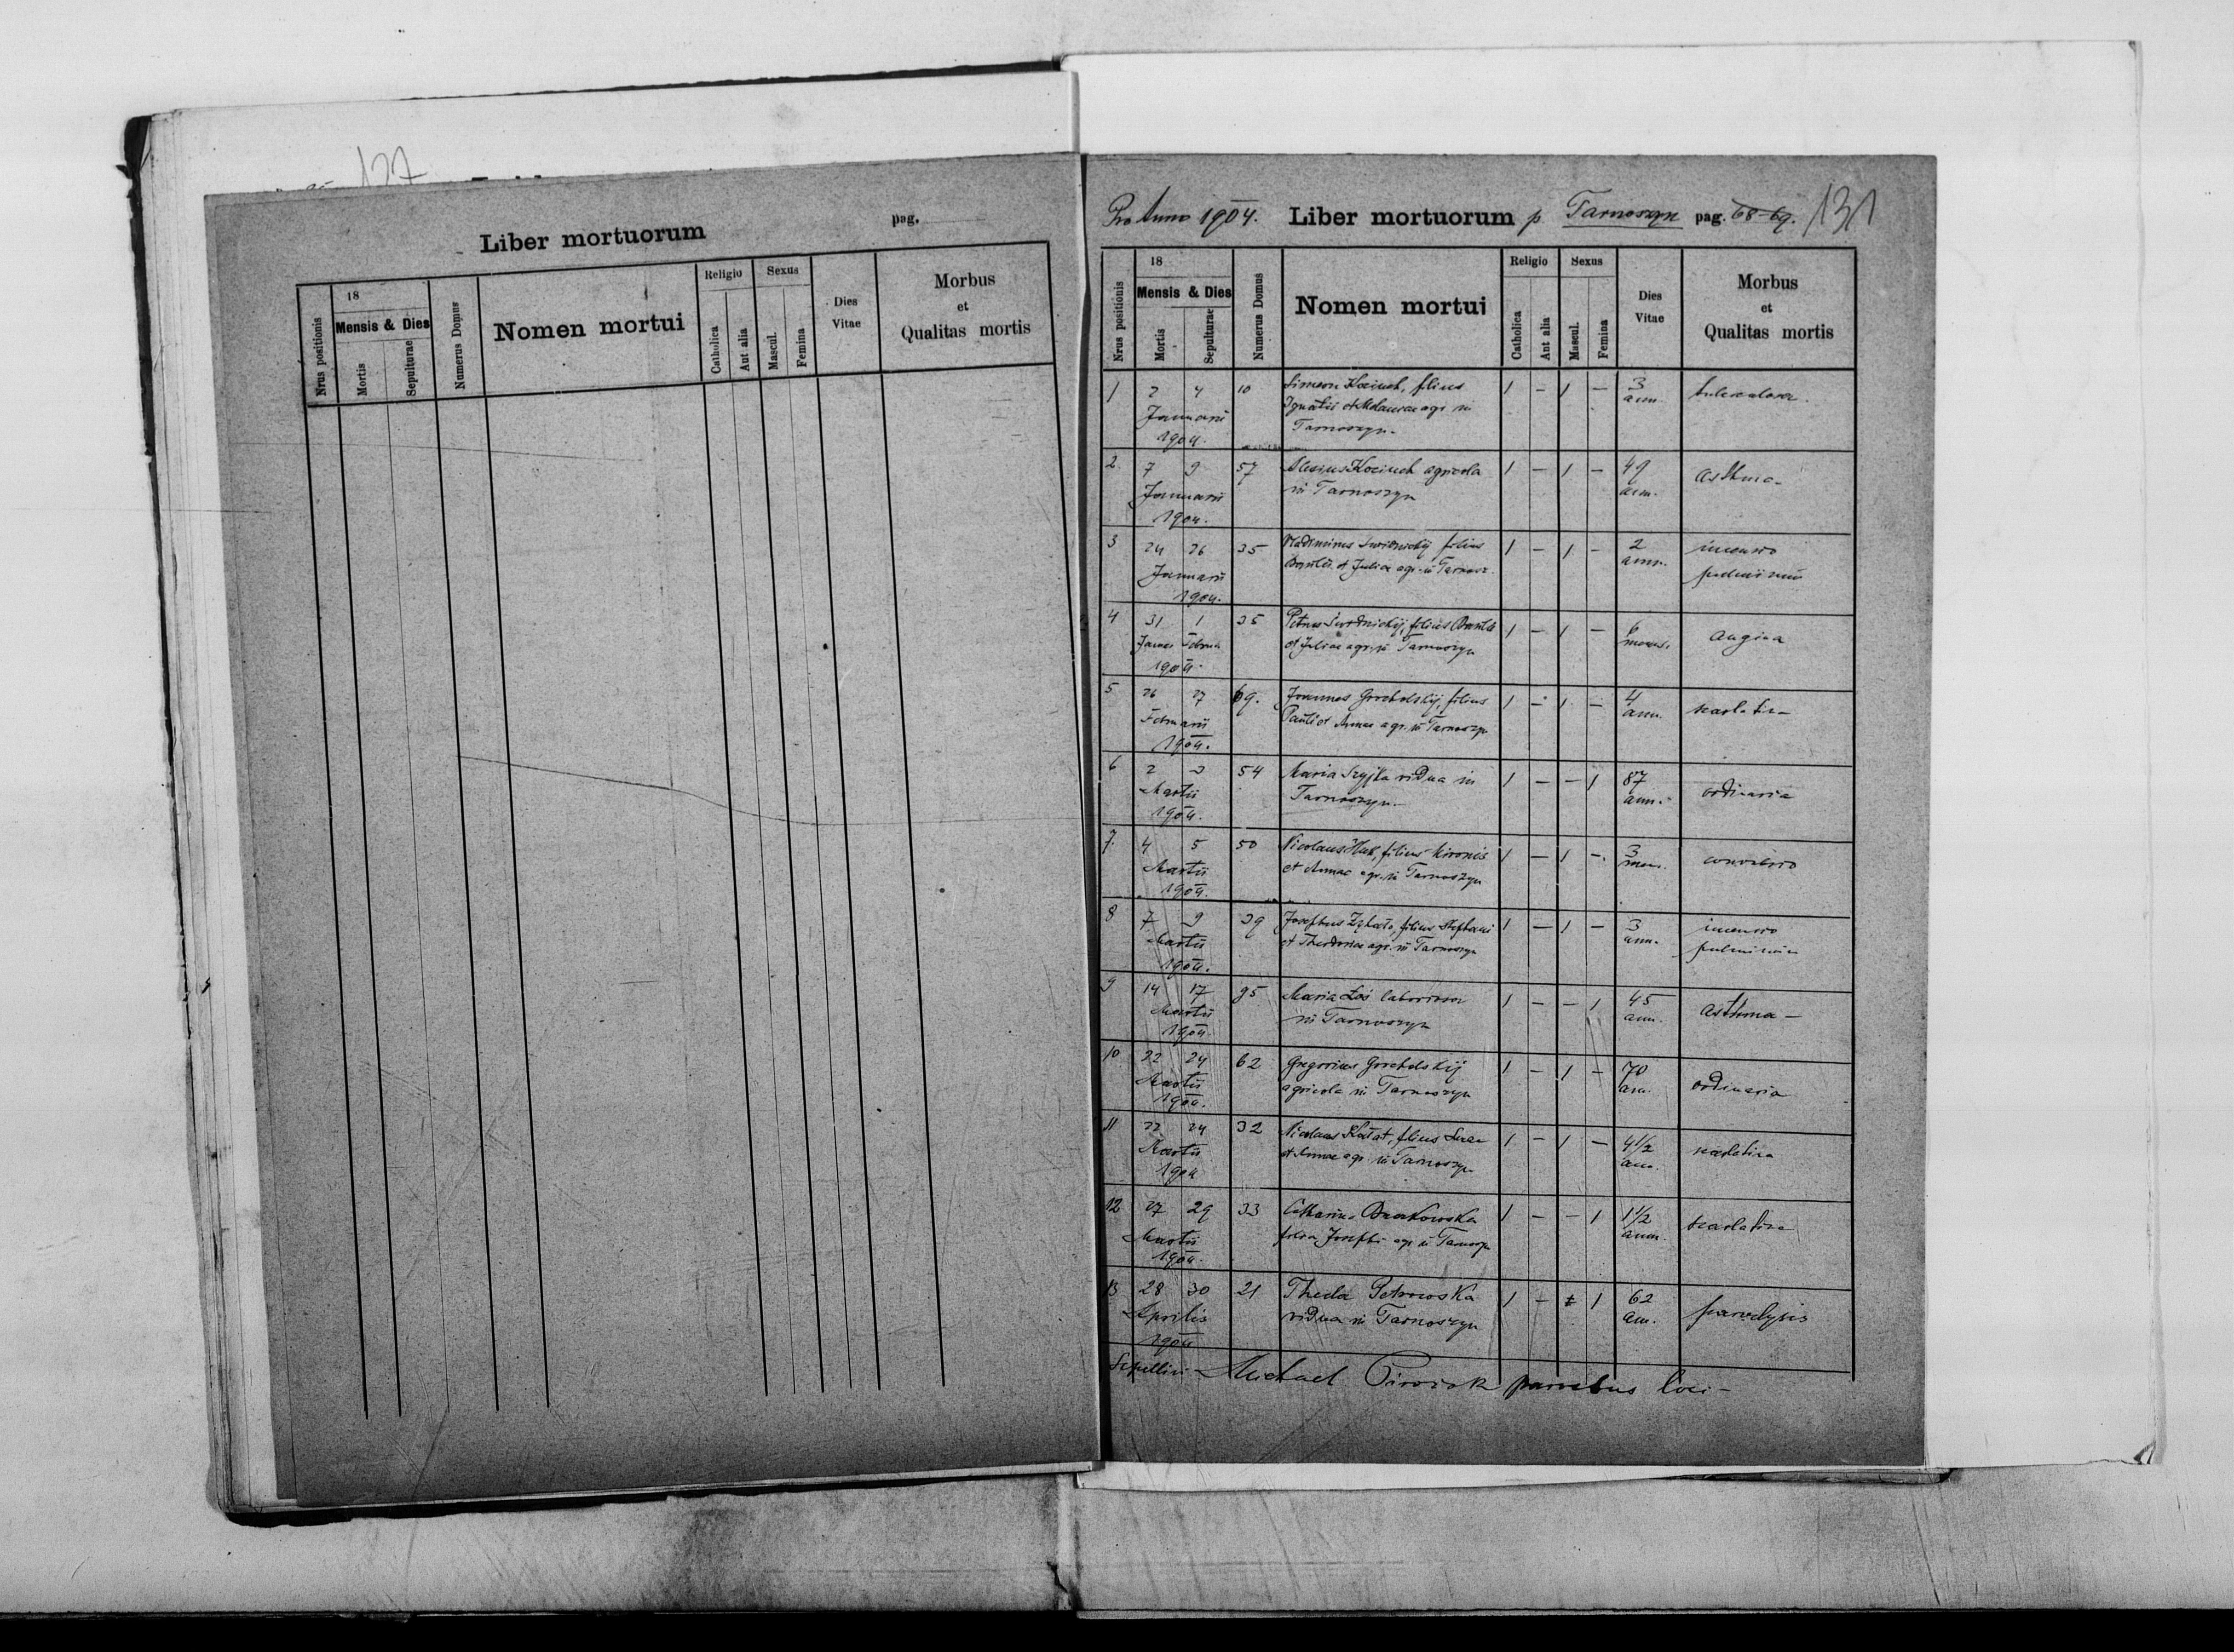 127
Liber mortuorum
pag.
Nrus positionis
18
Mensis & Dies
Mortis
Sepulturae
Numerus Domus
Nomen mortui
Religio
Catholica
Aut alia
Sexus
Mascul.
Femina
Dies
Vitae
Morbus
et
Qualitas mortis
Pro Anno 1904. Liber mortuorum p Tarnoszyn pag. 68-69. 131
Nrus positionis
18
Mensis & Dies
Mortis
Sepulturae
Numerus Domus
Nomen mortui
Religio
Catholica
Aut alia
Sexus
Mascul.
Femina
Dies
Vitae
Morbus
et
Qualitas mortis
1 2 4 10 Simeon Kociuch, filius 1 - 1 - 3
Januarii Ignatii et agr. in ann.
1904. Tarnoszyn.
2. 7 9 57 Kociuch agricola 1 - 1 - 49 Asthma-
Januarii in Tarnoszyn ann.
1904.
3 24 26 35 filius 1 - 1 - 2
Januarii et Juliae agr. in Tarnosz. ann.
1904.
4 31 1 35 Petrus filius 1 - 1 - 6 angina
et Juliae agr. in Tarnoszyn mens.
1904.
5 26 27 69. Joannes Grocholskij, filius 1 - 1 - 4
Februarii Pauli et Annae agr. in Tarnoszyn ann.
1904.
6 2 3 54 Maria vidua in 1 - - 1 87 ordinaria
Martii Tarnoszyn. ann.
1904.
7. 4 5 50 Nicolaus filius Mironis 1 - 1 -. 3
Martii et Annae agr. in Tarnoszyn men.
1904.
8 7 9 39 Josephus filius Stephani 1 - 1 - 3
Martii et Theodorae agr. in Tarnoszyn ann.
1904.
9 14 17 95 Maria Łoś 1 - - 1 45 asthma-
Martii in Tarnoszyn ann.
1904.
10 22 24 62 Gregorius Grocholskij 1 - 1 - 70 ordinaria
Martii agricola in Tarnoszyn ann.
1904.
11 22 24 32 Nicolaus filius 1 - 1 - 4 1/2 scarlatina
Martii et Annae agr. in Tarnoszyn ann.
1904
12 27 29 33 Catharina 1 - - 1 1 1/2 scarlatina
Martii filia Josephi agr. in Tarnoszyn ann.
1904.
13 28 30 21 Thecla Petrowska 1 - 1 62 paralysis
Aprilis vidua in Tarnoszyn ann.
1904
Sepelivi Michael parochus loci-